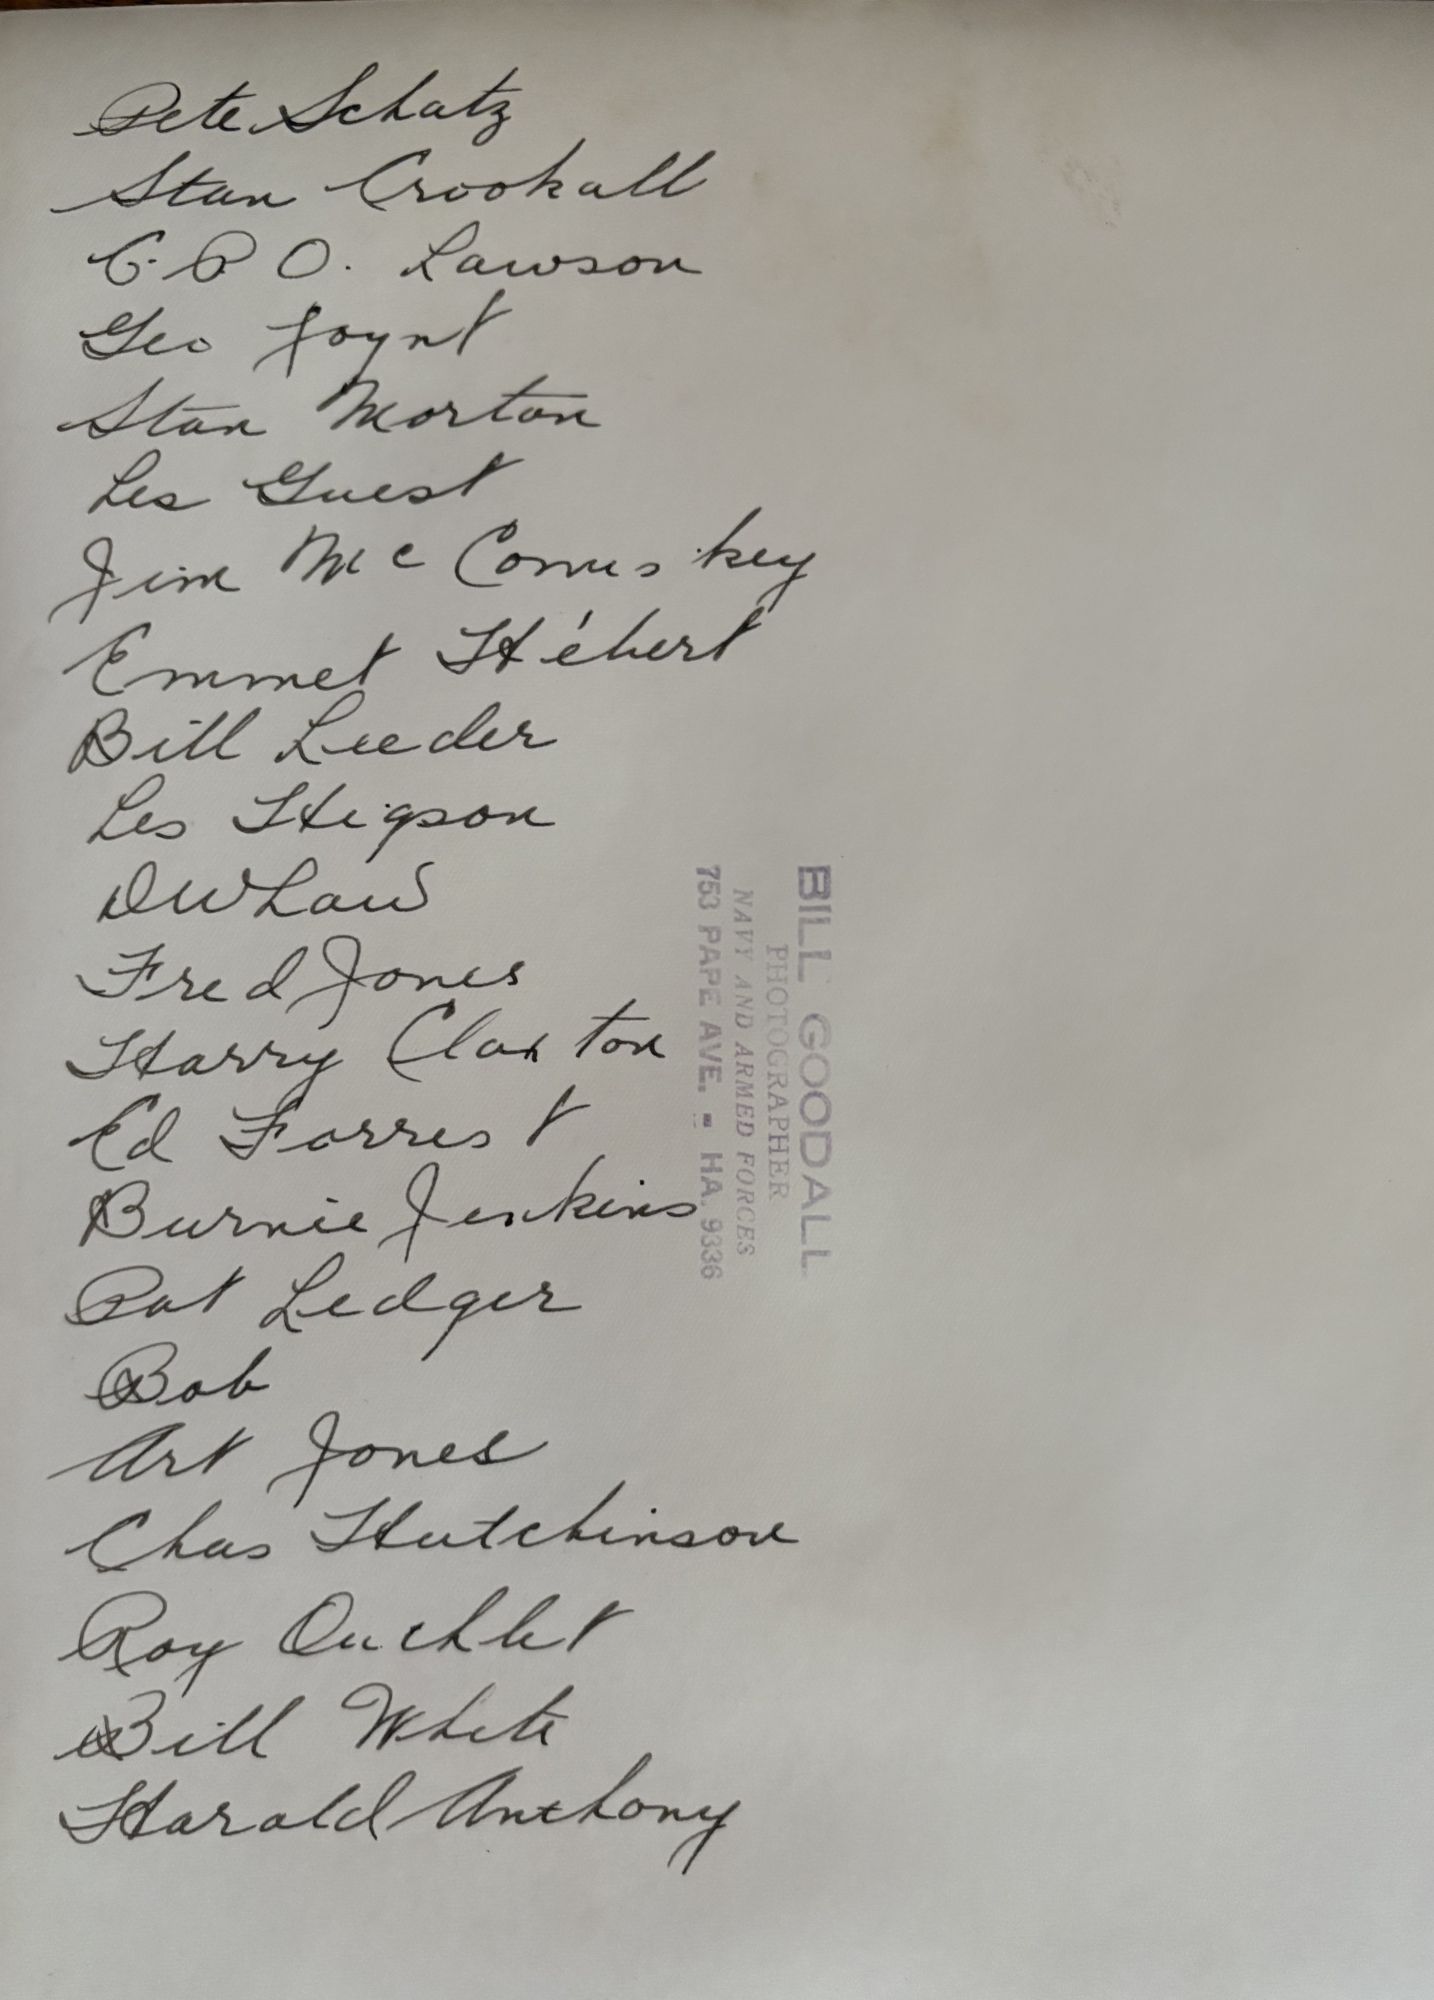 Pete Schatz
Stan Crookall
C.P O. Lawson
Geo Joynt
Stan Morton
Les Guest
Jim Mc Comuskey
Emmet Hébert
Bill Leeder
Les Higson
D W Law
Fred Jones
Harry Claxton
Ed Forrest
Burnie Jenkins
Pat Ledger
Bob
Art Jones
Chas Hutchinson
Roy
Bill White
Harald Anthony
BILL GOODALL
PHOTOGRAPHER
NAVY AND ARMED FORCES
753 PAPE AVE. - HA. 9336